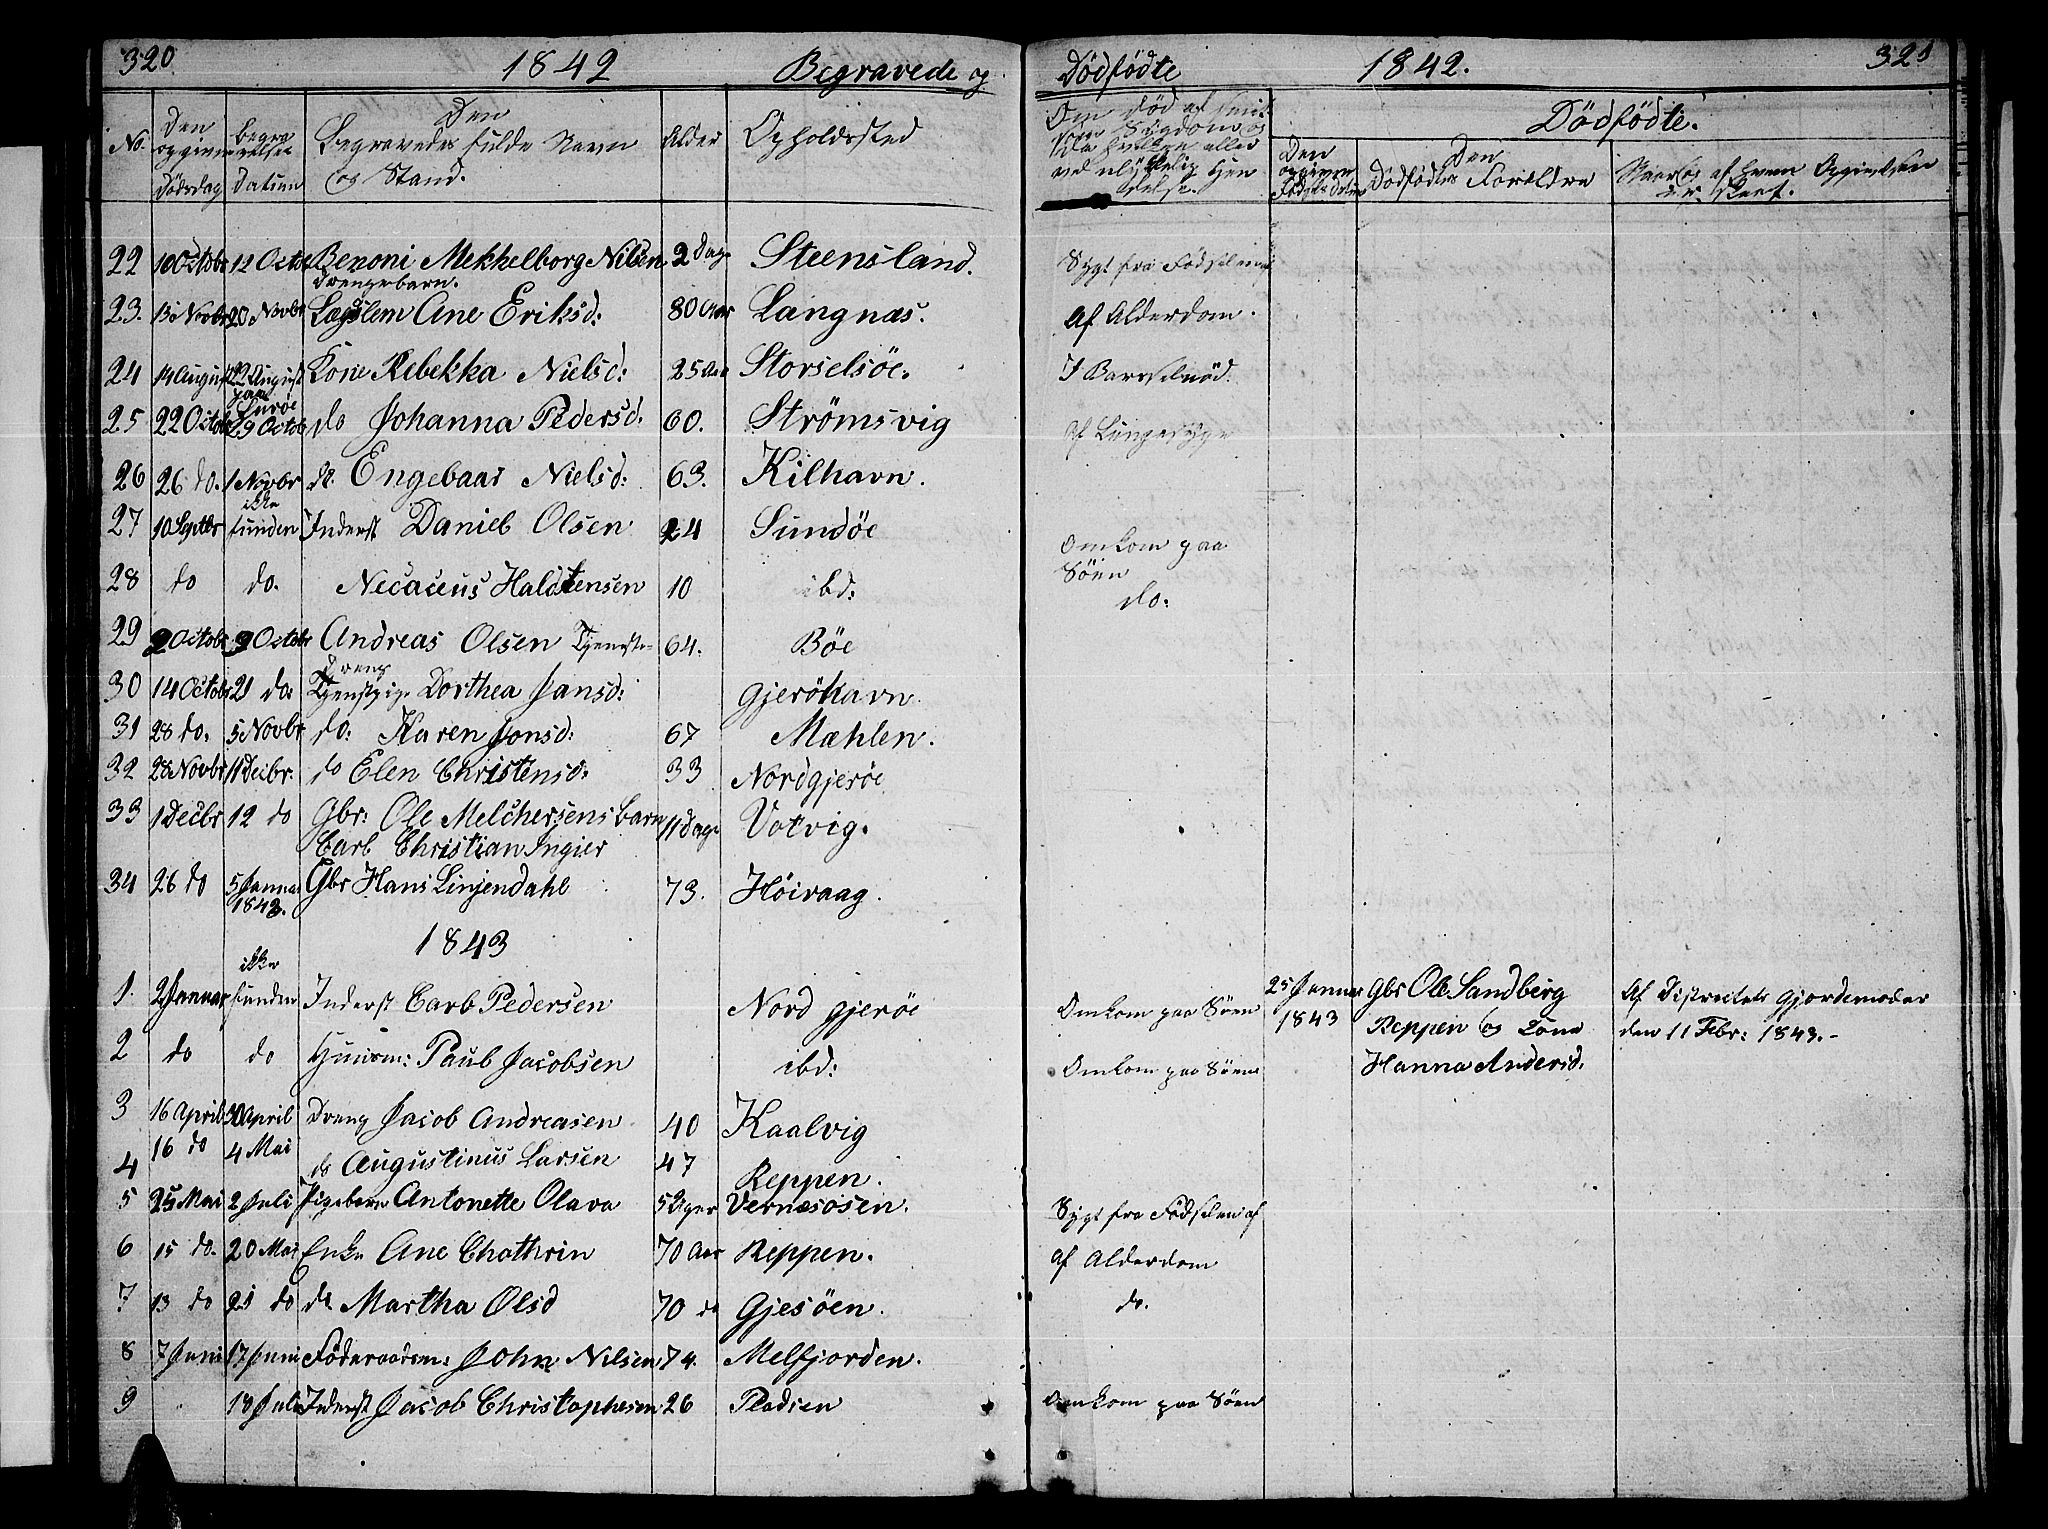 320 1842 Begravede og Dödfödte 1842. 321
No. Den opgivne Dödsdag Begravelses Datum Den Begravedes fulde Navn og Stand. Alder Opholdssted
Dödfödte.
Den opgivne Den Dödfödtes Forældre
22 10 Octobr 12 Octo Benoni Mekhelborg Nilsen 2 Dage Steensland. Sygt fra Födselen af
Drengebarn.
23. 13 Novbr 20 Novbr Lægslem Ane Eriksd: 80 Aar Langnæs. Af Alderdom.
24 14 August 22 August Kone Rebekka Nielsd: 25 Aar Storselsöe. I Barselnöd.
paa Luröe
25 22 Octob 29 Octob do Johanna Pedersd. 60. Strömsvig Af Lungesyge
26 26 do. 1 Novbr do. Engebaar Nielsd: 63. Kilhavn.
27 10 Septbr ikke funden Inderst Daniel Olsen 24 Sundöe Omkom paa Söen
28 do do. Necaceus Haldtensen 10 ibd: do.
29 2 Octobr 9 Octobr Andreas Olsen Tjeneste- 64. Böe
Dreng
30 14 Octob 21 do: Tjenstpige Dorthea Jansd: Gjeröhavn.
31 28 do. 5 Novbr do. Karen Jonsd: 67 Mæhlen.
32 28 Novbr 11 Decbr. do Elen Christensd: 33 Nordgjeröe
33 1 Decbr 12 do Gbr: Ole Melchersens Barn 11 Dage Votvig.
Carl Christian Ingier
34 26 do 5 Januar Gbr Hans Linjendahl 73. Höivaag.
1843.
1843
1. 2 Januar ikke funden Inderst Carl Pedersen Nord gjeröe Omkom paa Söen 25 Januar 1843 Gbr Ole Sandberg Af Districtets Gjordemoder
Reppen og Kone den 11 Febr: 1843.-
2 do do Huusm: Paul Jacobsen ibd: Omkom paa Söen Hanna Andersd.
3 16 April 30 April Dreng Jacob Andreasen 40 Kaalvig
4 16 do 4 Mai do Augustinus Larsen 47 Reppen.
5 25 Mai 2 Juli Pigebarn Antonette Olava 5 Uger Vernæsosen. Sygt fra Födselen af
6 15 do. 20 Mai Enke Ane Chathrin 70 Aar Reppen. Af Alderdom
7 13 do 21 do do Martha Olsd 70 do Gjesöen. do.
8 7 Juni 17 Juni Föderaadsm: John Nilsen 74. Melfjorden.
9 18 Juli Inderst Jacob Christophersen 26 Pladsen Omkom paa Söen